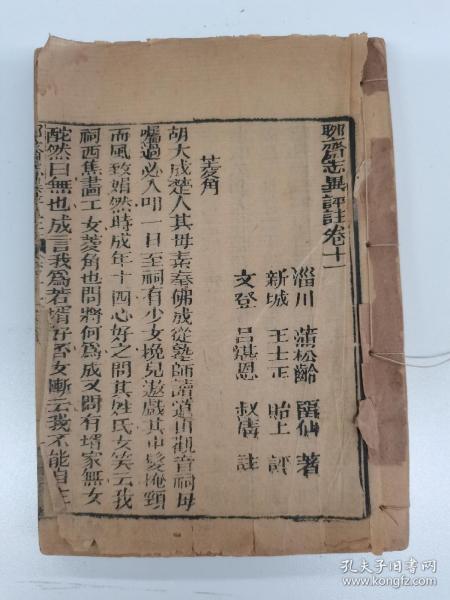 聊齋志異評註卷十一
淄川 蒲松齡 留仙 著
新城 王士正 貽上 評
文登 呂湛恩 叔清 註
菱角
胡大成楚人其母素奉佛成從塾師讀道由觀音祠母
囑過必入叩一日至祠有少女挽兒遨戲其中髮掩頸
而風致娟然時成年十四心好之問其姓氏女笑云我
祠西焦畫工女菱角也問將何為成又問有壻家無女
酡然曰無也成言我為若壻好否女慚云我不能自主
孔夫子旧书网
www.kongfz.com